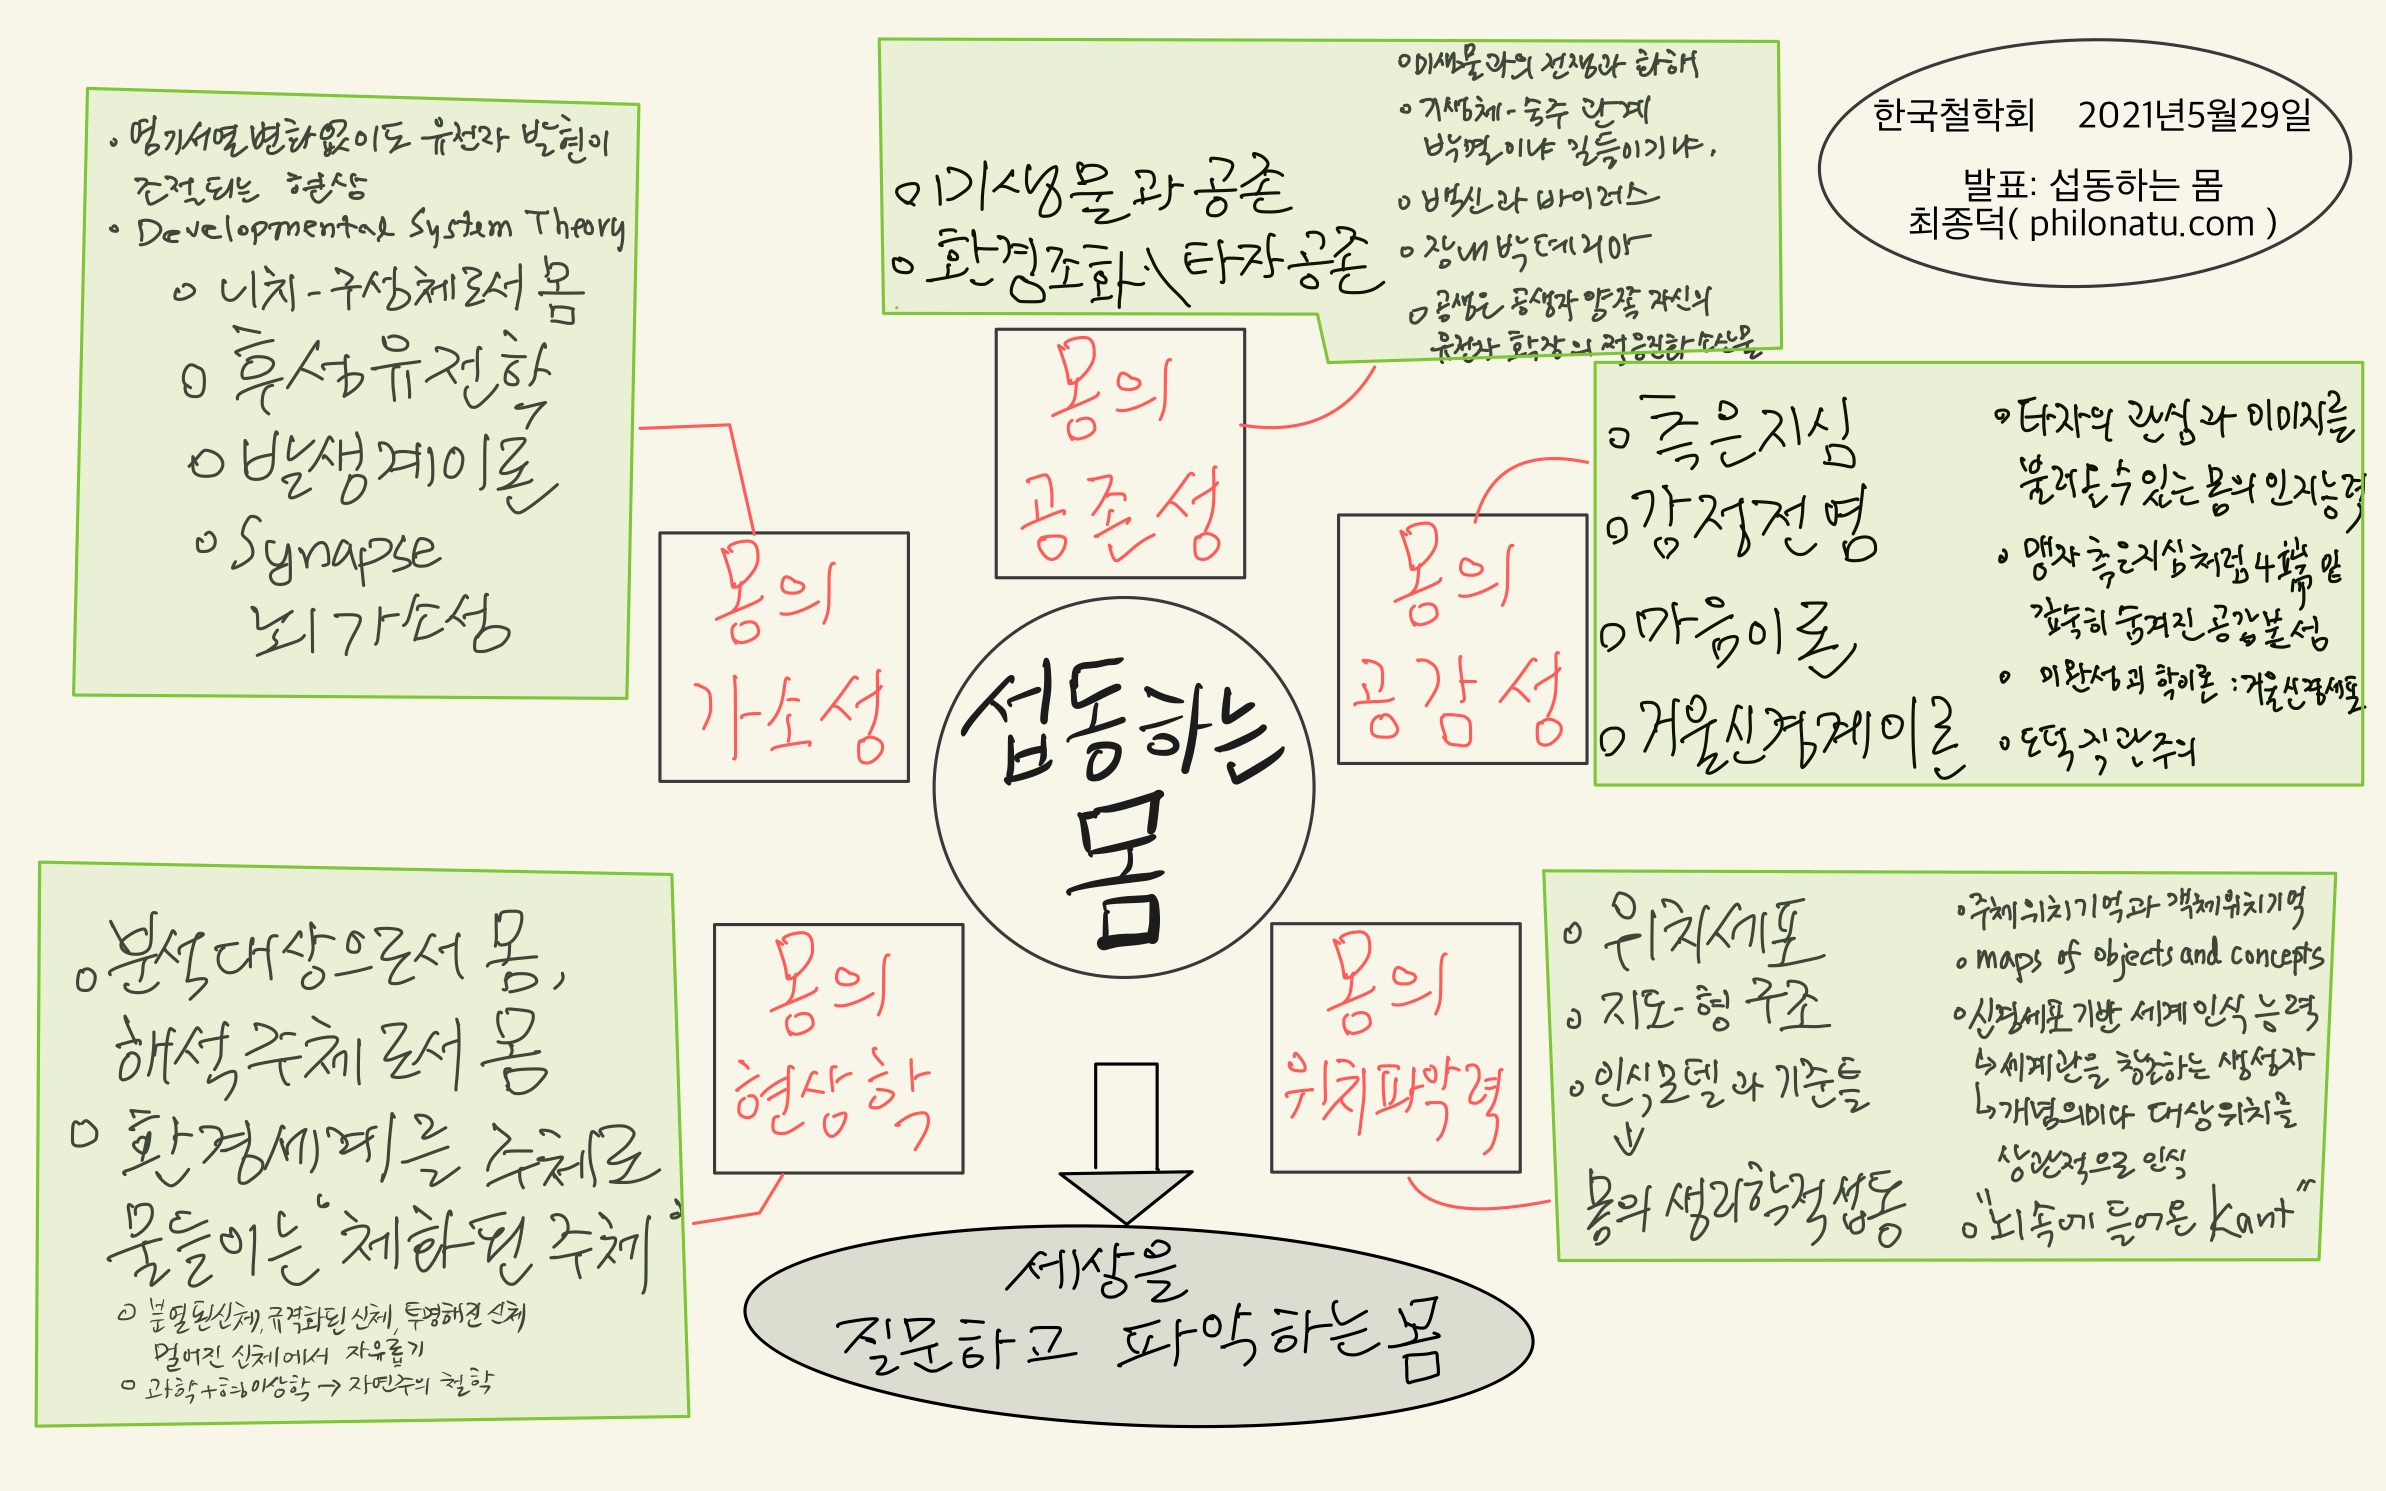 한국철학회 2021년5월29일
발표: 섭동하는 몸
최종덕( philonatu.com )
섭동하는
몸
몸의
가소성
• 염기서열변화없이도 유전자 발현이
조절되는 현상
• Developmental System Theory
○ 니치-구성체로서 몸
○ 후성유전학
○ 발생계이론
○ Synapse
뇌가소성
몸의
공존성
○ 미생물과 공존
○ 환경조화\타자공존
○ 미생물과의 전쟁과 화해
○ 기생체-숙주 관계
박멸이냐 길들이기냐.
○ 백신과 바이러스
○ 장내박테리아
○ 공생은 공생자 양쪽 자신의
유전자 확장의 적응진화 소산물
몸의
공감성
○ 측은지심
○ 감정전염
○ 마음이론
○ 거울신경계이론
○ 타자의 관심과 이미지를
불러올수있는 몸의 인지능력
○ 맹자 측은지심처럼 4端 밑
깊숙히 숨겨진 공감본성
○ 미완성 과학이론 : 거울신경세포
○ 도덕직관주의
몸의
현상학
○ 분석대상으로서 몸,
해석주체로서 몸
○ 환경세계를 주체로
물들이는 ‘체화된 주체’
○ 분열된신체, 규격화된 신체, 투명해진 신체
멀어진 신체에서 자유롭기
○ 과학+형이상학 → 자연주의 철학
몸의
위치파악력
○ 위치세포
○ 지도-형 구조
○ 인식모델과 기준틀
↓
몸의 생리학적섭동
○ 주체위치기억과 객체위치기억
○ maps of objects and concepts
○ 신경세포기반 세계인식 능력
↳ 세계관을 창조하는 생성자
↳ 개념의미다 대상위치를
상관적으로 인식
○ "뇌속에 들어온 Kant"
세상을
질문하고 파악하는 몸